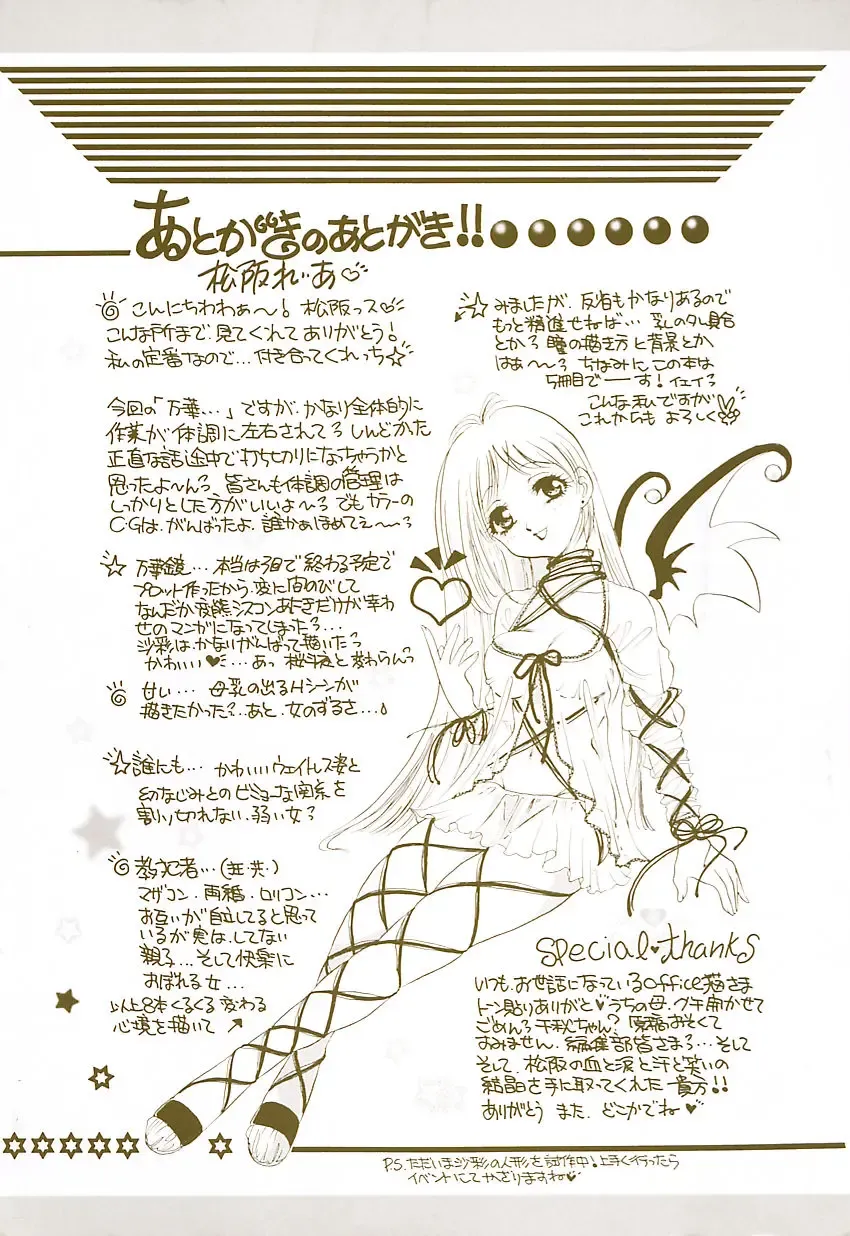 あとがきのあとがき!!
松阪れいあ♡
こんにちわわぁ〜! 松阪っス♡
こんな所まで、見てくれてありがとう!
私の定番なので…付き合ってくれっち☆
今回の「万華…」ですが、かなり全体的に
作業が体調に左右されてるしんどかた
正直な話途中で打ち切りになっちゃうかと
思ったよ〜んる 皆さんも体調の管理は
しっかりとした方がいいよ〜る でもカラーの
C・Gは、がんばったよ、誰かぁほめてぇ〜る
☆万華鏡…本当は3回で終わる予定で
プロット作ったから、変に間のびして
なんだか変態シスコンあにきだけが幸わ
せのマンガになってしまったる…
沙彩は、かなりがんばって描いたる
かわいい♥…あっ 桜子と変わらんっ
甘い… 母乳の出るHシーンが
描きたかった?…あと、女のずるさ…♪
☆誰にも… かわいいウェイトレス姿と
幼なじみとのビミョーな関係を
割り切れない、弱い女る
マザコン、再婚、ロリコン…
お互いが自立してると思って
いるが実は、してない
親子…そして快楽に
おぼれる女…
以上8本くるくる変わる
心境を描いて↗
☆みましたが、反省もかなりあるので
もっと精進せねば… 乳のタレ具合
とかる 瞳の描き方と背景とか
はぁ〜〜る ちなみにこの本は
5冊目でーーす! イェイる
こんな私ですが
これからも よろしく
special♥thanks
いつも、お世話になっているoffice猫さま
トーン貼りありがと♥うちの母、グチ聞かせて
ごめんる 千秋ちゃん? 原稿おそくて
すみません、編集部皆さまる…そして
そして、松阪の血と涙と汗と笑いの
結晶を手に取ってくれた貴方!!
ありがとう また、どこかでね♥
P.S.ただいま沙彩の人形を試作中!上手く行ったら
イベントにてかざりますね♡